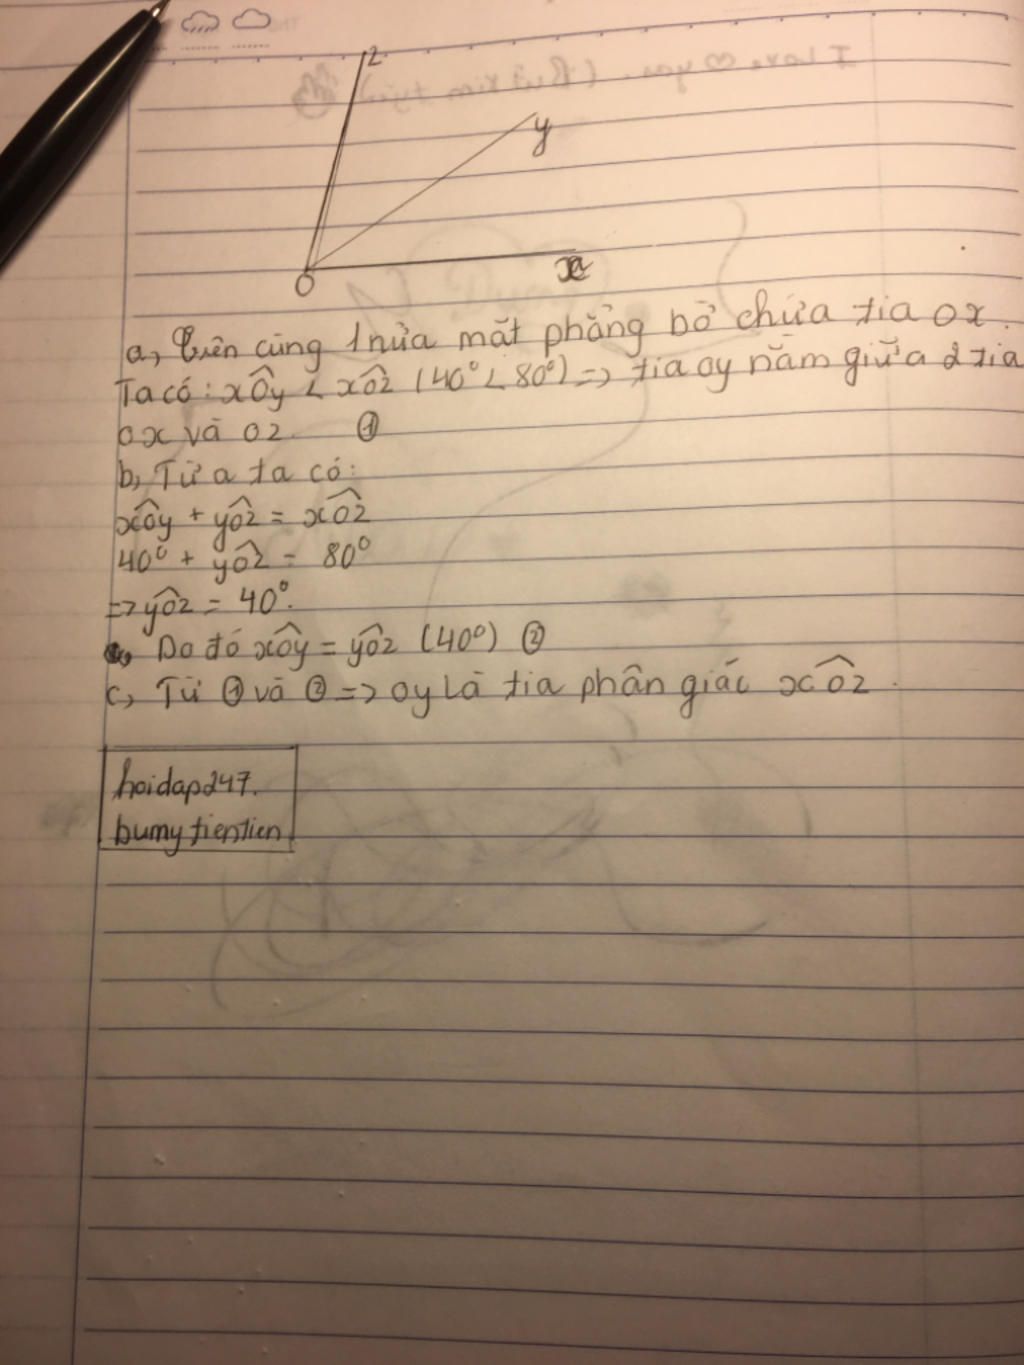 z
y
x
O
a, Trên cùng 1 nửa mặt phẳng bờ chứa tia Ox.
Ta có: xÔy < xÔz (40° < 80°) => tia Oy nằm giữa 2 tia
Ox và Oz. ①
b, Từ a ta có:
xÔy + yÔz = xÔz
40° + yÔz = 80°
=> yÔz = 40°.
Do đó xÔy = yÔz (40°) ②
c, Từ ① và ② => Oy là tia phân giác xÔz.
hoidap247.
bumytientien